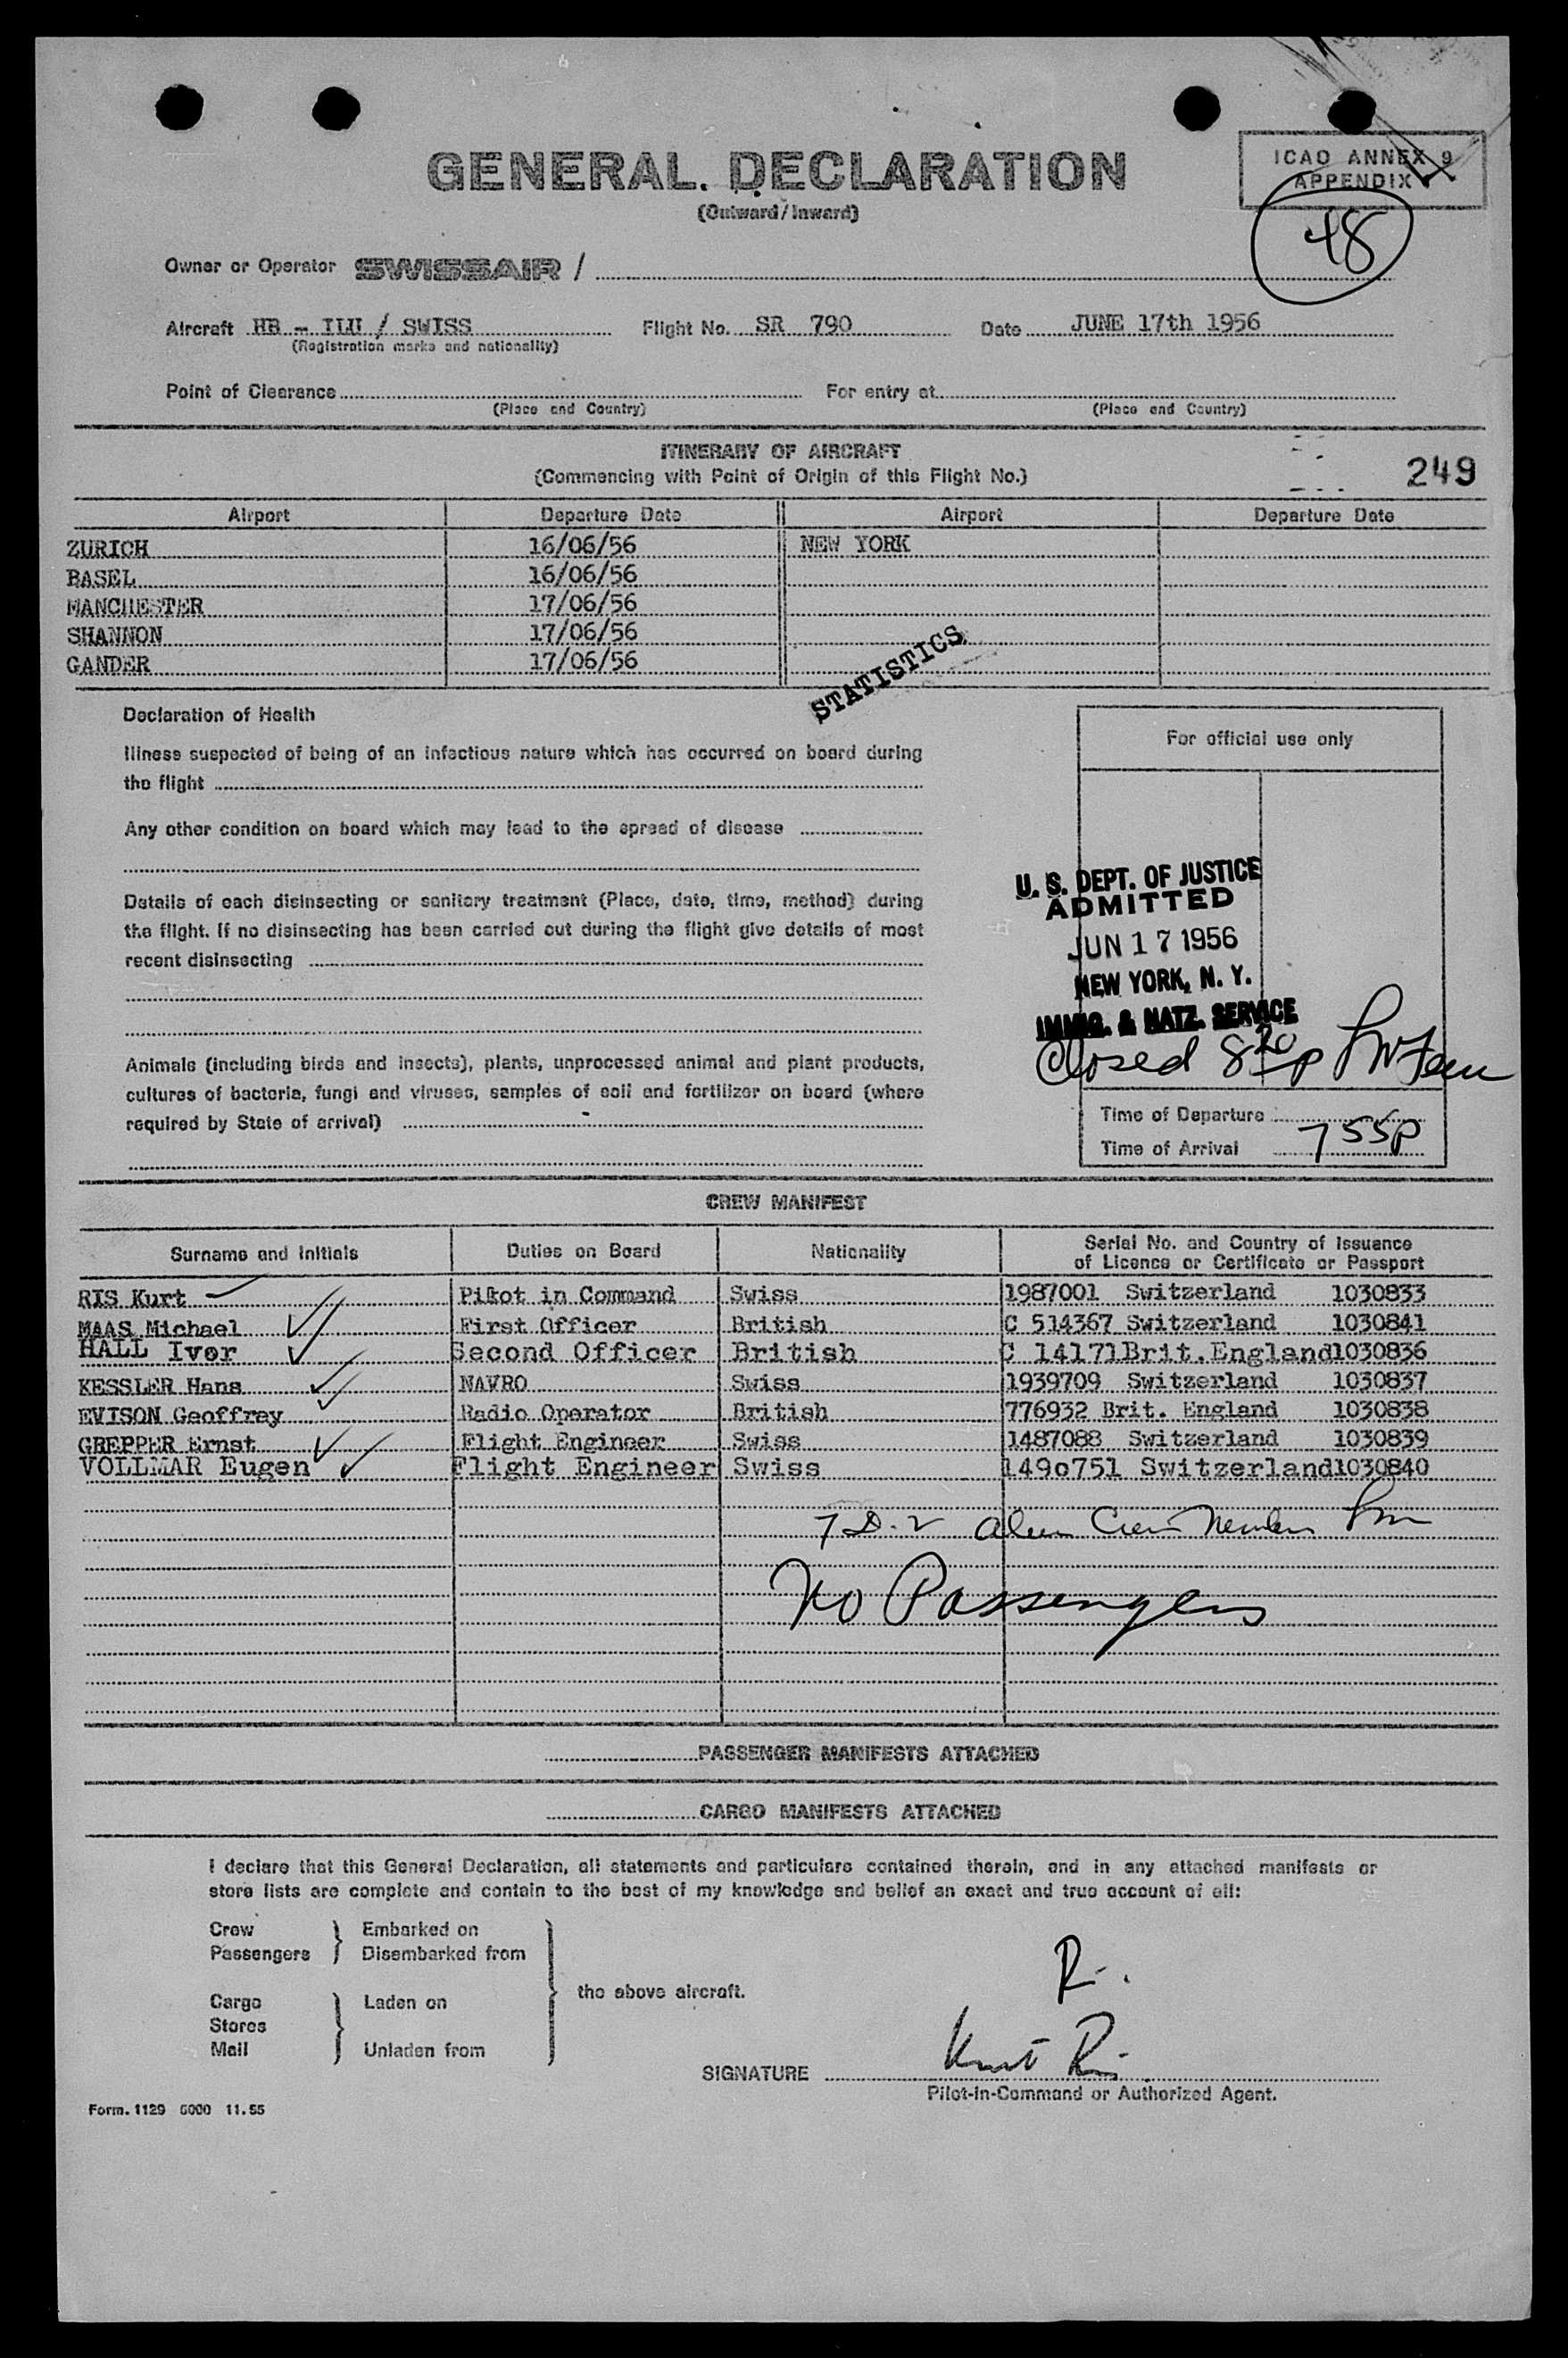 GENERAL. DECLARATION
(Outward/Inward)
ICAO ANNEX 9
APPENDIX
48
Owner or Operator SWISSAIR /
Aircraft HB - ILU / SWISS Flight No. SR 790 Date JUNE 17th 1956
(Registration marks and nationality)
Point of Clearance For entry at
(Place and Country) (Place and Country)
ITINERARY OF AIRCRAFT
(Commencing with Point of Origin of this Flight No.)
249
Airport Departure Date Airport Departure Date
ZURICH 16/06/56 NEW YORK
BASEL 16/06/56
MANCHESTER 17/06/56
SHANNON 17/06/56
GANDER 17/06/56
STATISTICS
Declaration of Health
Illness suspected of being of an infectious nature which has occurred on board during
the flight
Any other condition on board which may lead to the spread of disease
Details of each disinsecting or sanitary treatment (Place, date, time, method) during
the flight. If no disinsecting has been carried out during the flight give details of most
recent disinsecting
Animals (including birds and insects), plants, unprocessed animal and plant products,
cultures of bacteria, fungi and viruses, samples of soil and fertilizer on board (where
required by State of arrival)
For official use only
U. S. DEPT. OF JUSTICE
ADMITTED
JUN 17 1956
NEW YORK, N. Y.
IMMIG. & NATZ. SERVICE
Closed 8 20 p
Time of Departure
Time of Arrival 7 55p
CREW MANIFEST
Surname and Initials Duties on Board Nationality Serial No. and Country of Issuance
of Licence or Certificate or Passport
RIS Kurt Pilot in Command Swiss 1987001 Switzerland 1030833
MAAS Michael First Officer British C 514367 Switzerland 1030841
HALL Ivor Second Officer British C 14171Brit.England1030836
KESSLER Hans NAVRO Swiss 1939709 Switzerland 1030837
EVISON Geoffrey Radio Operator British 776932 Brit. England 1030838
GREPPER Ernst Flight Engineer Swiss 1487088 Switzerland 1030839
VOLLMAR Eugen Flight Engineer Swiss 149o751 Switzerland1030840
7 D.2 alien Crew Members
No Passengers
PASSENGER MANIFESTS ATTACHED
CARGO MANIFESTS ATTACHED
I declare that this General Declaration, all statements and particulars contained therein, and in any attached manifests or
store lists are complete and contain to the best of my knowledge and belief an exact and true account of all:
Crew Embarked on
Passengers Disembarked from
the above aircraft.
Cargo Laden on
Stores
Mail Unladen from
SIGNATURE Kurt Ris
Pilot-in-Command or Authorized Agent.
Form. 1129 5000 11.55